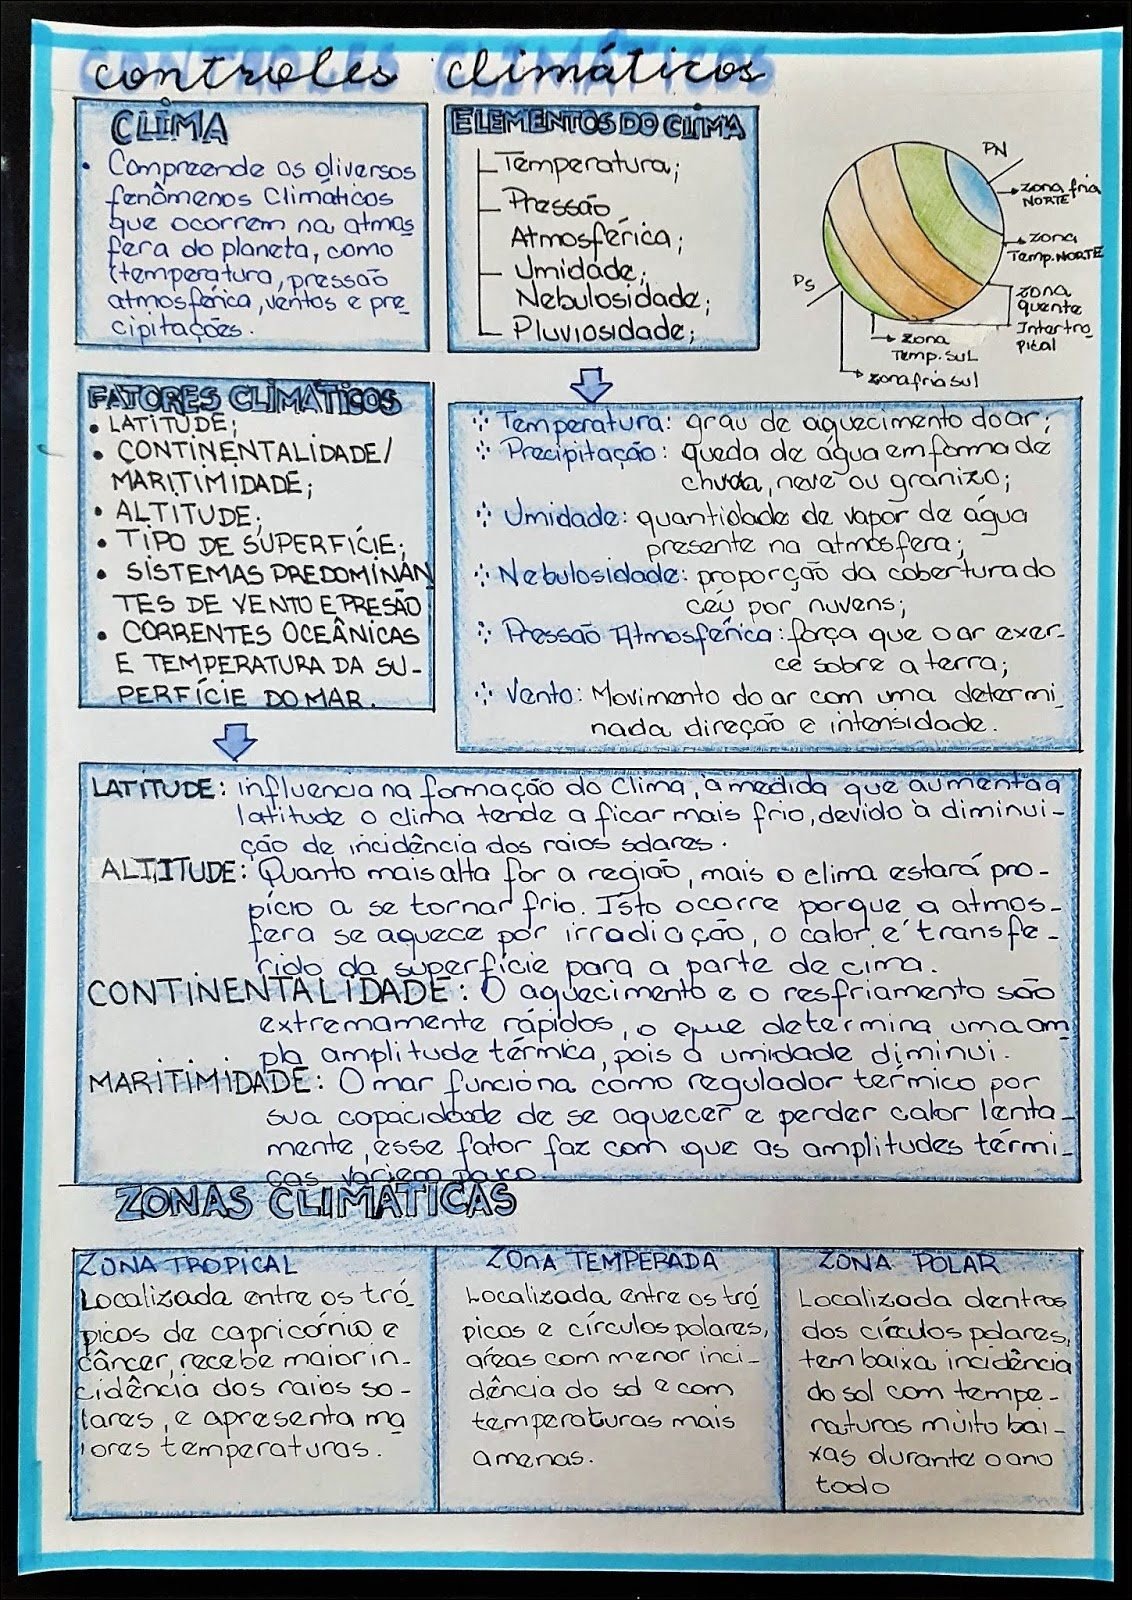 controles climáticos
CLIMA
• Compreende os diversos
fenômenos Climáticos
que ocorrem na atmos
fera do planeta, como
temperatura, pressão
atmosférica, ventos e pre
cipitações.
ELEMENTOS DO CLIMA
Temperatura;
Pressão
Atmosférica;
Umidade;
Nebulosidade;
Pluviosidade;
PN
zona fria
NORTE
zona
Temp. NORTE
zona
quente
Intertro
pical
PS
zona
Temp. SUL
zona fria sul
FATORES CLIMÁTICOS
• LATITUDE;
• CONTINENTALIDADE/
MARITIMIDADE;
• ALTITUDE;
• TIPO DE SUPERFÍCIE;
• SISTEMAS PREDOMINAN
TES DE VENTO E PRESÃO
• CORRENTES OCEÂNICAS
E TEMPERATURA DA SU-
PERFÍCIE DO MAR.
Temperatura: grau de aquecimento do ar;
Precipitação: queda de água em forma de
chuva, neve ou granizo;
Umidade: quantidade de vapor de água
presente na atmosfera;
Nebulosidade: proporção da cobertura do
céu por nuvens;
Pressão Atmosférica: força que o ar exer-
ce sobre a terra;
Vento: Movimento do ar com uma determi
nada direção e intensidade.
LATITUDE: influencia na formação do Clima, à medida que aumenta a
latitude o clima tende a ficar mais frio, devido à diminui-
ção de incidência dos raios solares.
ALTITUDE: Quanto mais alta for a região, mais o clima estará pro-
pício a se tornar frio. Isto ocorre porque a atmos-
fera se aquece por irradiação, o calor é transfe-
rido da superfície para a parte de cima.
CONTINENTALIDADE: O aquecimento e o resfriamento são
extremamente rápidos, o que determina uma am
pla amplitude térmica, pois a umidade diminui.
MARITIMIDADE: O mar funciona como regulador térmico por
sua capacidade de se aquecer e perder calor lenta-
mente, esse fator faz com que as amplitudes térmi-
cas variem pouco
ZONAS CLIMÁTICAS
ZONA TROPICAL
Localizada entre os tró
picos de capricórnio e
câncer, recebe maior in-
cidência dos raios so-
lares, e apresenta ma
iores temperaturas.
ZONA TEMPERADA
Localizada entre os tró
picos e círculos polares,
áreas com menor inci-
dência do sol e com
temperaturas mais
amenas.
ZONA POLAR
Localizada dentros
dos círculos polares,
tem baixa incidência
do sol com tempe-
raturas muito bai-
xas durante o ano
todo